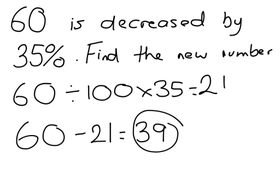 60 is decreased by
35%. Find the new number
60 ÷ 100 × 35 = 21
60 - 21 = 39